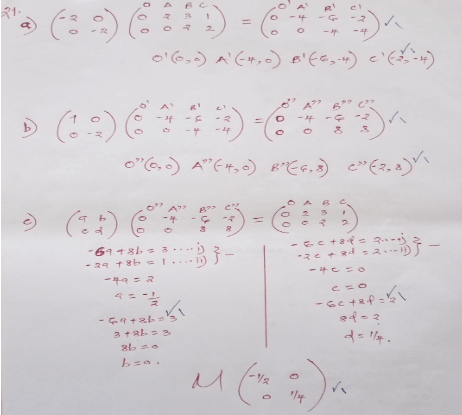 21.
a) (-2 0
0 -2) (O A B C
0 2 3 1
0 0 2 2) = (O' A' B' C'
0 -4 -6 -2
0 0 -4 -4)
O'(0,0) A'(-4,0) B'(-6,-4) C'(-2,-4)
b) (1 0
0 -2) (O' A' B' C'
0 -4 -6 -2
0 0 -4 -4) = (O'' A'' B'' C''
0 -4 -6 -2
0 0 8 8)
O''(0,0) A''(-4,0) B''(-6,8) C''(-2,8)
c) (a b
c d) (O'' A'' B'' C''
0 -4 -6 -2
0 0 8 8) = (O A B C
0 2 3 1
0 0 2 2)
-6a+8b=3 ....i)
-2a+8b=1 ....ii) } -
-4a=2
a=-1/2
-6a+8b=3
3+8b=3
8b=0
b=0.
-6c+8d=2...i)
-2c+8d=2...ii) } -
-4c=0
c=0
-6c+8d=2
8d=2
d=1/4.
M (-1/2 0
0 1/4)